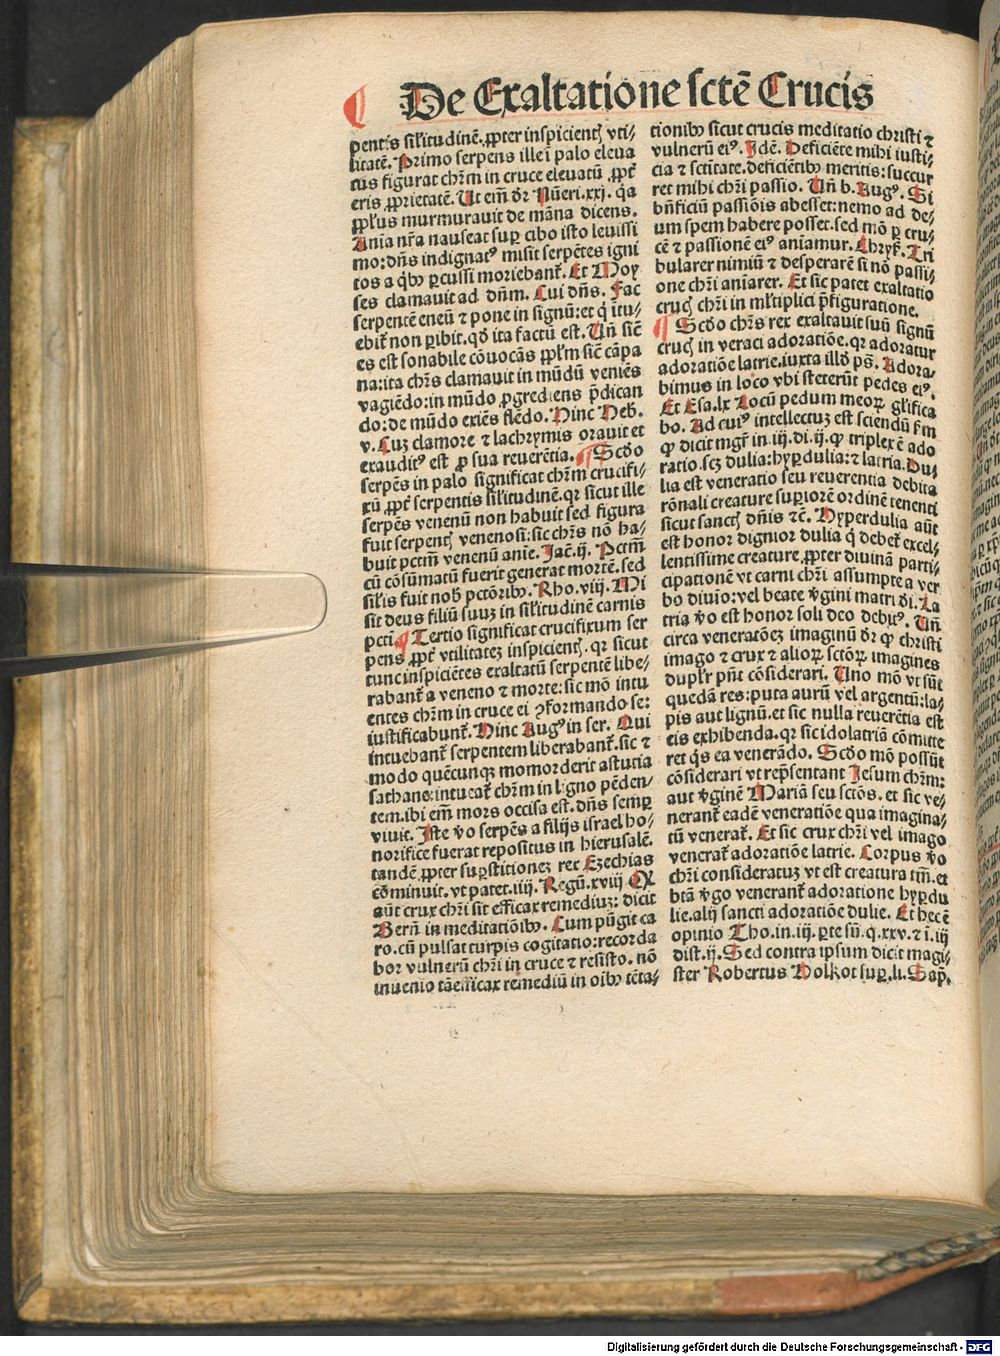 De Exaltatione sctē Crucis
pentis silitudinē. ꝓpter inspicientꝭ vti-
litatē. Primo serpens ille ī palo eleua
tus figurat chr̄m in cruce eleuatū ꝓpt̄
eris ꝓprietatē. Ut em̄ dr̄ Nūeri. xxj. q̄a
ppl̄us murmurauit de māna dicens.
Anīa nr̄a nauseat suꝑ cibo isto leuissi
mo: dn̄s indignatꝰ misit serpētes igni
tos a qͥbꝰ ꝑcussi moriebant̄. Et Moy
ses clamauit ad dn̄m. Cui dn̄s. Fac
serpentē eneū ⁊ pone in signū: et qͥ itu-
ebit̄ non ꝑibit. qd̄ ita factū est. Un̄ sic̄
es est sonabile cōuocās ppl̄m sic̄ cāpa
na: ita chr̄s clamauit in mūdū veniēs
vagiēdo: in mūdo ꝓgrediens p̄dican
do: de mūdo exiēs flēdo. Hinc Heb.
v. Cuꝫ clamore ⁊ lachrymis orauit et
exauditꝰ est ꝓ sua reuerētia. ¶ Scd̄o
serpēs in palo significat chr̄m crucifi-
xū ꝓpt̄ serpentis silitudinē. qꝛ sicut ille
serpēs venenū non habuit sed figura
fuit serpentꝭ venenosi: sic chr̄s nō ha-
buit pctm̄ venenū anie. Jac̄. ij. Pctm̄
cū cōsūmatū fuerit generat mortē. sed
silis fuit nob̄ pctōribꝰ. Rho. viij. Mi
sit deus filiū suuꝫ in silitudinē carnis
pcti. ¶ Tertio significat crucifixum ser
pens ꝓpt̄ vtilitateꝫ inspicientꝭ. qꝛ sicut
tunc inspiciētes exaltatū serpentē libe-
rabant̄ a veneno ⁊ morte: sic mō intu
entes chr̄m in cruce ei ꝯformando se:
iustificabunt̄. Hinc Augꝰ in ser. Qui
intuebant̄ serpentem liberabant̄. sic ⁊
modo quēcunqꝫ momorderit astutia
sathane: intueat̄ chr̄m in ligno pēden-
tem. ibi em̄ mors occisa est. dn̄s semꝑ
viuit. Iste v̄o serpēs a filijs israel ho-
norifice fuerat repositus in hierusalē.
tandē ꝓpter suꝑstitioneꝫ rex Ezechias
cōminuit. vt patet. iiij. Regū. xviij Qꝫ
aūt crux chr̄i sit efficax remediuꝫ: dicit
Bern̄ in meditatiōibꝰ. Cum pūgit ca
ro. cū pulsat turpis cogitatio: recorda
bor vulnerū chr̄i in cruce ⁊ resisto. nō
inuenio tā efficax remediū in oībꝰ tēta-
tionibꝰ sicut crucis meditatio christi ⁊
vulnerū eiꝰ. Idē. Deficiēte mihi iusti-
cia ⁊ sctītate. deficiētibꝰ meritis: succur
ret mihi chr̄i passio. Un̄ b. Augꝰ. Si
bn̄ficiū passiōis abesset: nemo ad de-
um spem habere posset. sed mō ꝑ cru-
cē ⁊ passionē eiꝰ aniamur. Chryſ. Tri
bularer nimiū ⁊ desperarē si nō passi-
one chr̄i aniarer. Et sic patet exaltatio
crucꝭ chr̄i in ml̄tiplici p̄figuratione.
¶ Scd̄o chr̄s rex exaltauit suū signū
crucꝭ in veraci adoratiōe. qꝛ adoratur
adoratiōe latrie. iuxta illd̄ ps̄. Adora-
bimus in loco vbi steterūt pedes eiꝰ.
Et Esa. lx Locū pedum meoꝝ gl̄ifica
bo. Ad cuiꝰ intellectuꝫ est sciendū ẜm
ꝙ dicit mgr̄ in. iij. di. ij. ꝙ triplex ē ado
ratio. scꝫ dulia: hyꝑdulia: ⁊ latria. Du
lia est veneratio seu reuerentia debita
rōnali creature suꝑiorē ordinē tenenti
sicut sanctꝭ dn̄is ⁊c̄. Hyperdulia aūt
est honor dignior dulia q̄ debet̄ excel-
lentissime creature. ꝓpter diuinā parti-
cipationē vt carni chr̄i assumpte a ver
bo diuīo: vel beate v̄gini matri dī. La
tria v̄o est honor soli deo debitꝰ. Un̄
circa veneratōeꝫ imaginū dr̄ ꝙ christi
imago ⁊ crux ⁊ alioꝝ sctōꝝ imagines
dupl̄r pn̄t cōsiderari. Uno mō vt sūt
quedā res: puta aurū vel argentū: la-
pis aut lignū. et sic nulla reuerētia est
eis exhibenda. qꝛ sic idolatriā cōmitte
ret qͥs ea venerādo. Scd̄o mō possūt
cōsiderari vt repn̄sentant Jesum chr̄m:
aut v̄ginē Mariā seu sctōs. et sic ve-
nerant̄ eadē veneratiōe qua imagina-
tū venerat̄. Et sic crux chr̄i vel imago
venerat̄ adoratiōe latrie. Corpus v̄o
chr̄i consideratuꝫ vt est creatura tm̄. et
btā v̄go venerant̄ adoratione hyꝑdu
lie. alij sancti adoratiōe dulie. Et hec ē
opinio Tho. in. iij. ꝑte sū. q. xxv. ⁊ ī. iij
dist. ij. Sed contra ipsum dicit magi-
ster Robertus Holkot suꝑ. li. Sap̄.
Digitalisierung gefördert durch die Deutsche Forschungsgemeinschaft - DFG